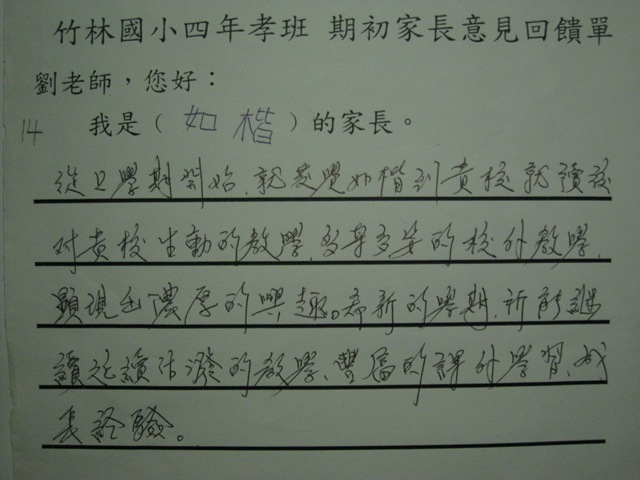 竹林國小四年孝班 期初家長意見回饋單
劉老師，您好：
14 我是（如楷）的家長。
從上學期開始,就發覺如楷到貴校就讀後
对貴校生動的教學,多采多姿的校外教學,
顯現出濃厚的興趣。希新的學期,祈能繼
續延續活潑的教學、豐富的課外學習、成
長經驗。